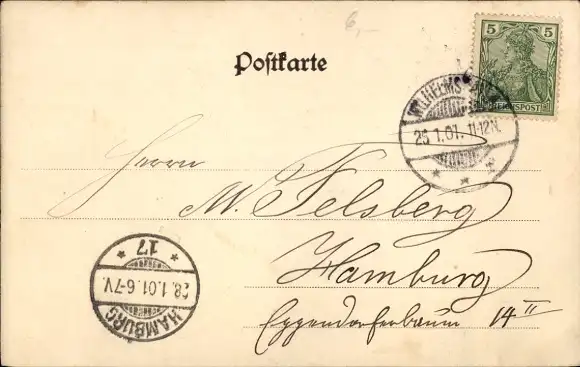 6,-
5 5
REICHSPOST
Postkarte
25.1.01. 11-12N.
Herrn
W. Felsberg
Hamburg
Eppendorferbaum 14 II
HAMBURG
28.1.01. 6-7V.
* 17 *